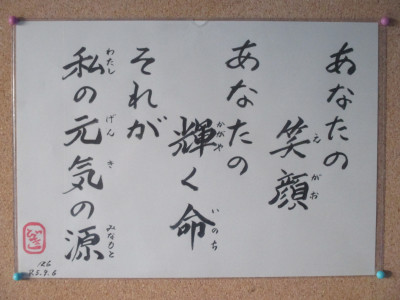 あなたの
笑顔
えがお
あなたの
輝く命
かがや
いのち
それが
私の元気の源
わたし
げんき
みなもと